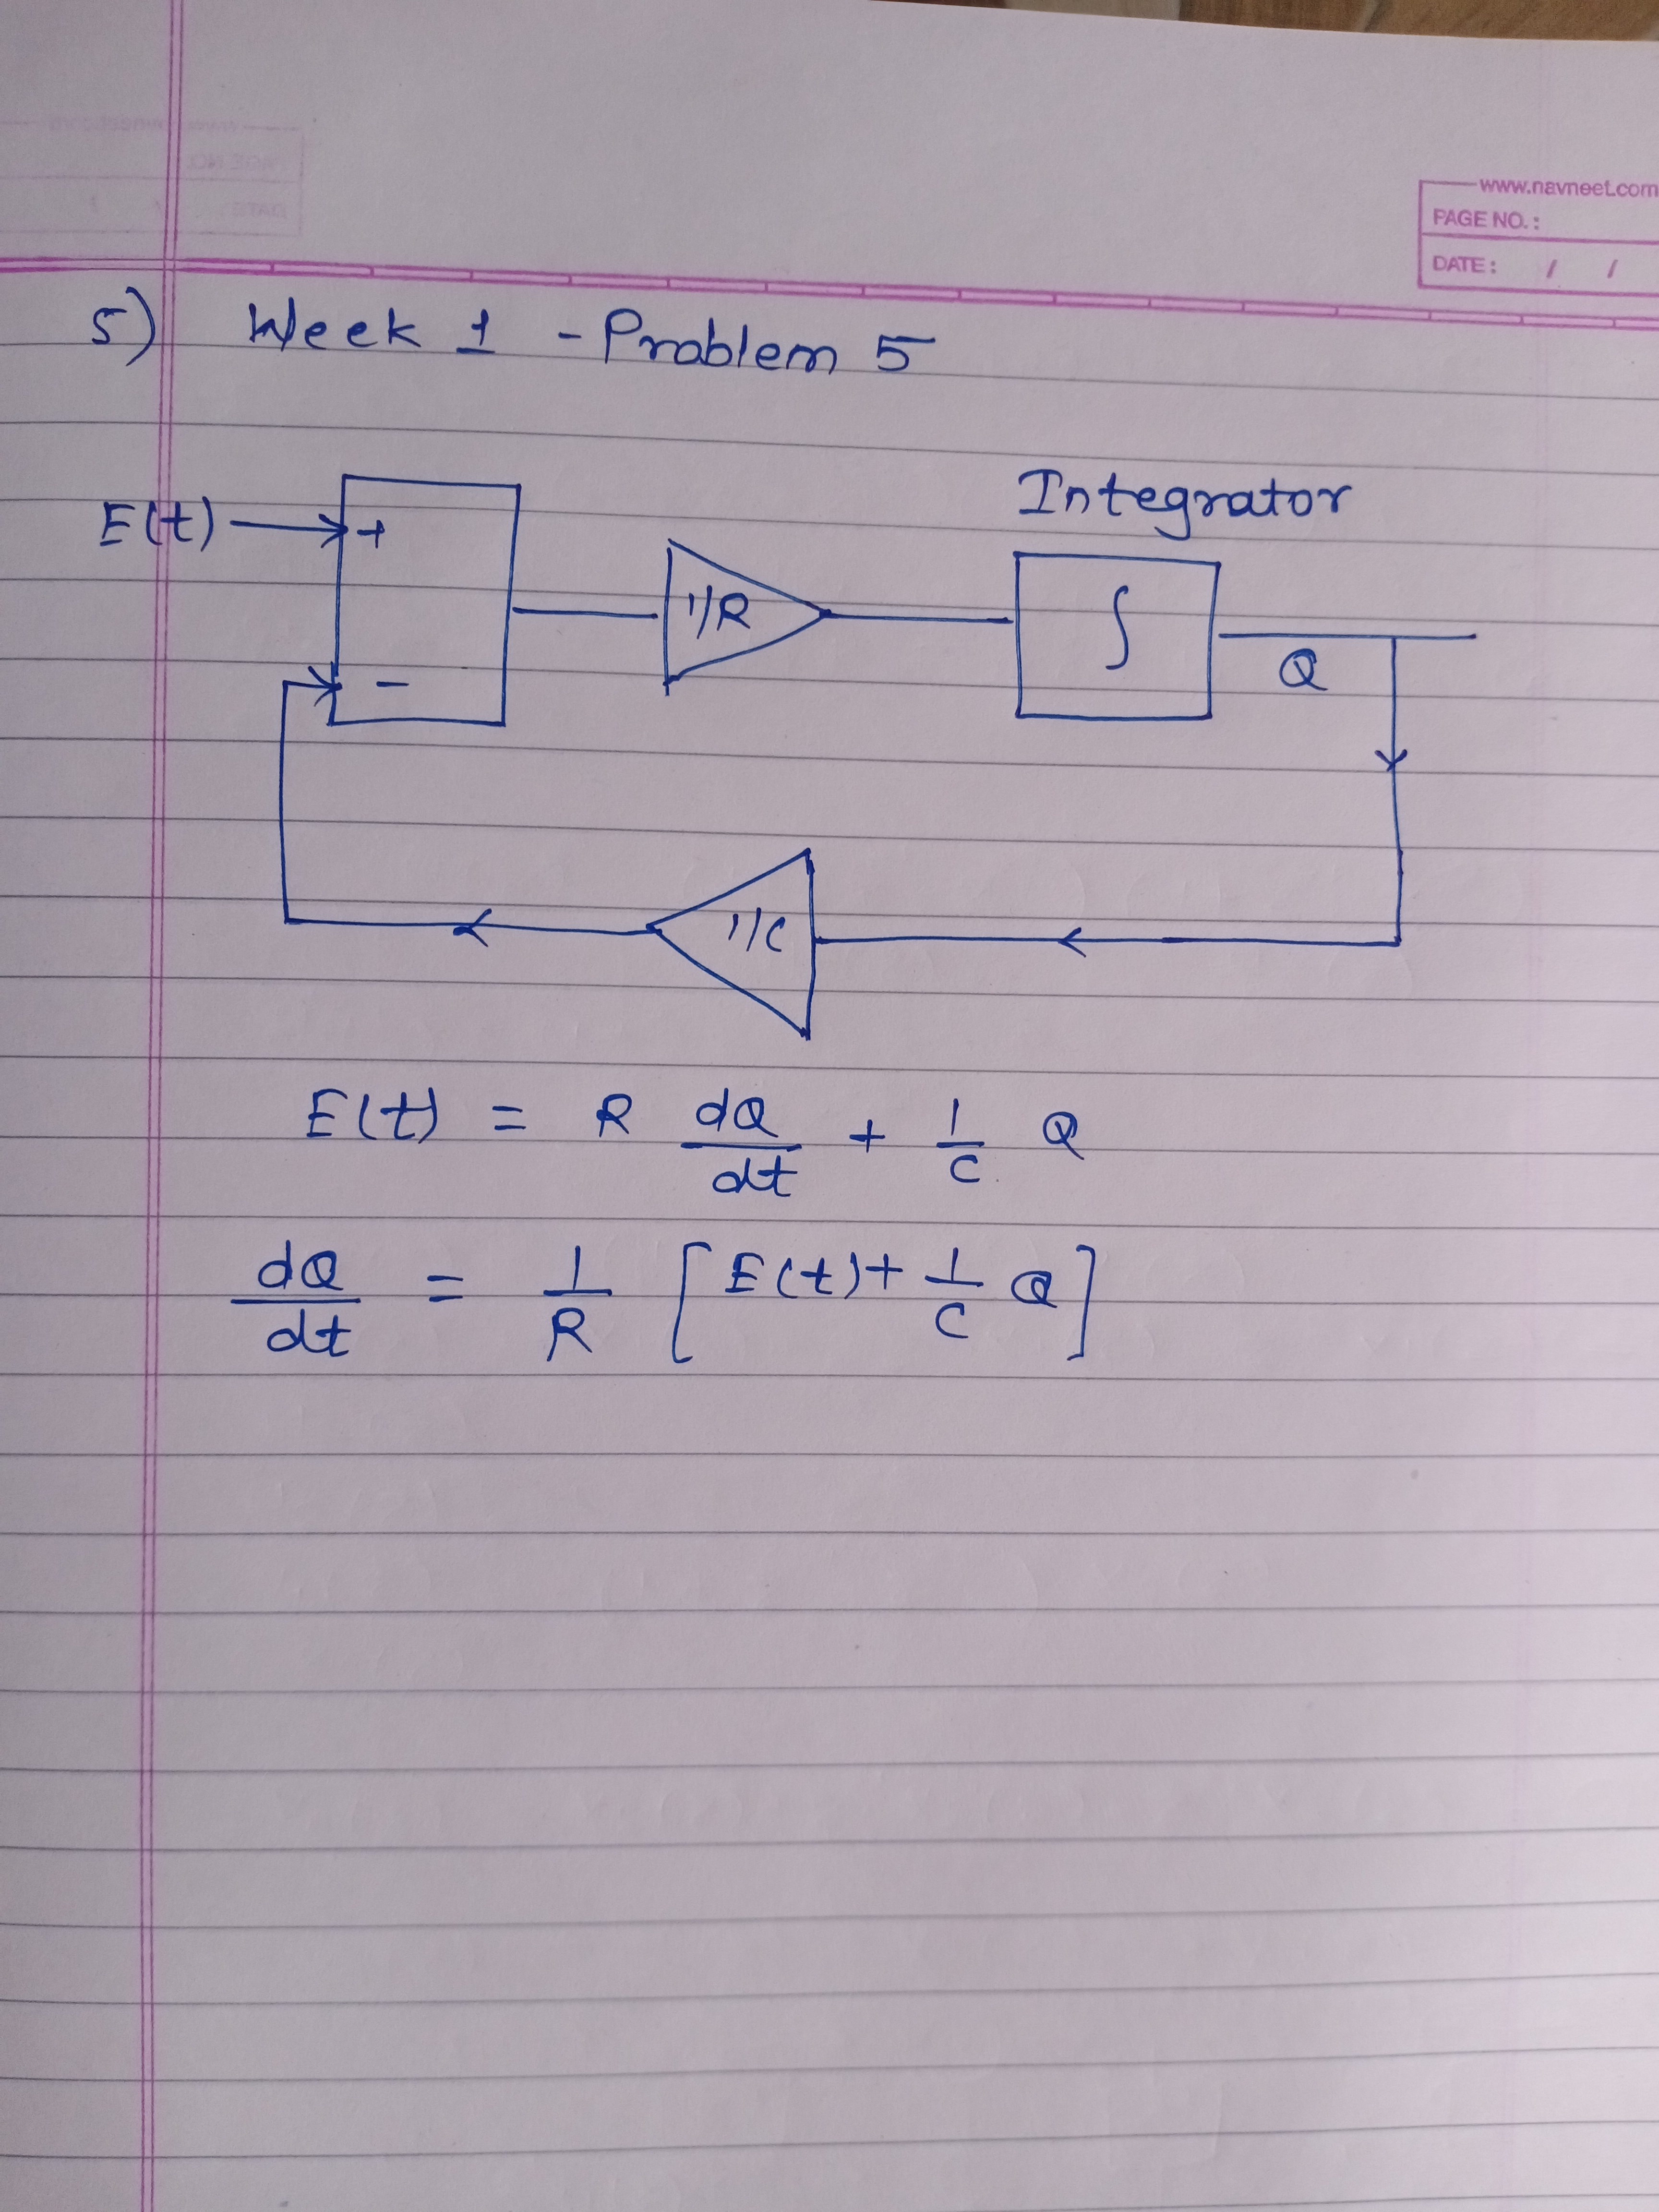 www.navneet.com
PAGE NO.:
DATE: / /
5) Week 1 - Problem 5
Integrator
E(t) +
1/R ∫
Q
-
1/C
E(t) = R dQ/dt + 1/C Q
dQ/dt = 1/R [E(t) + 1/C Q]